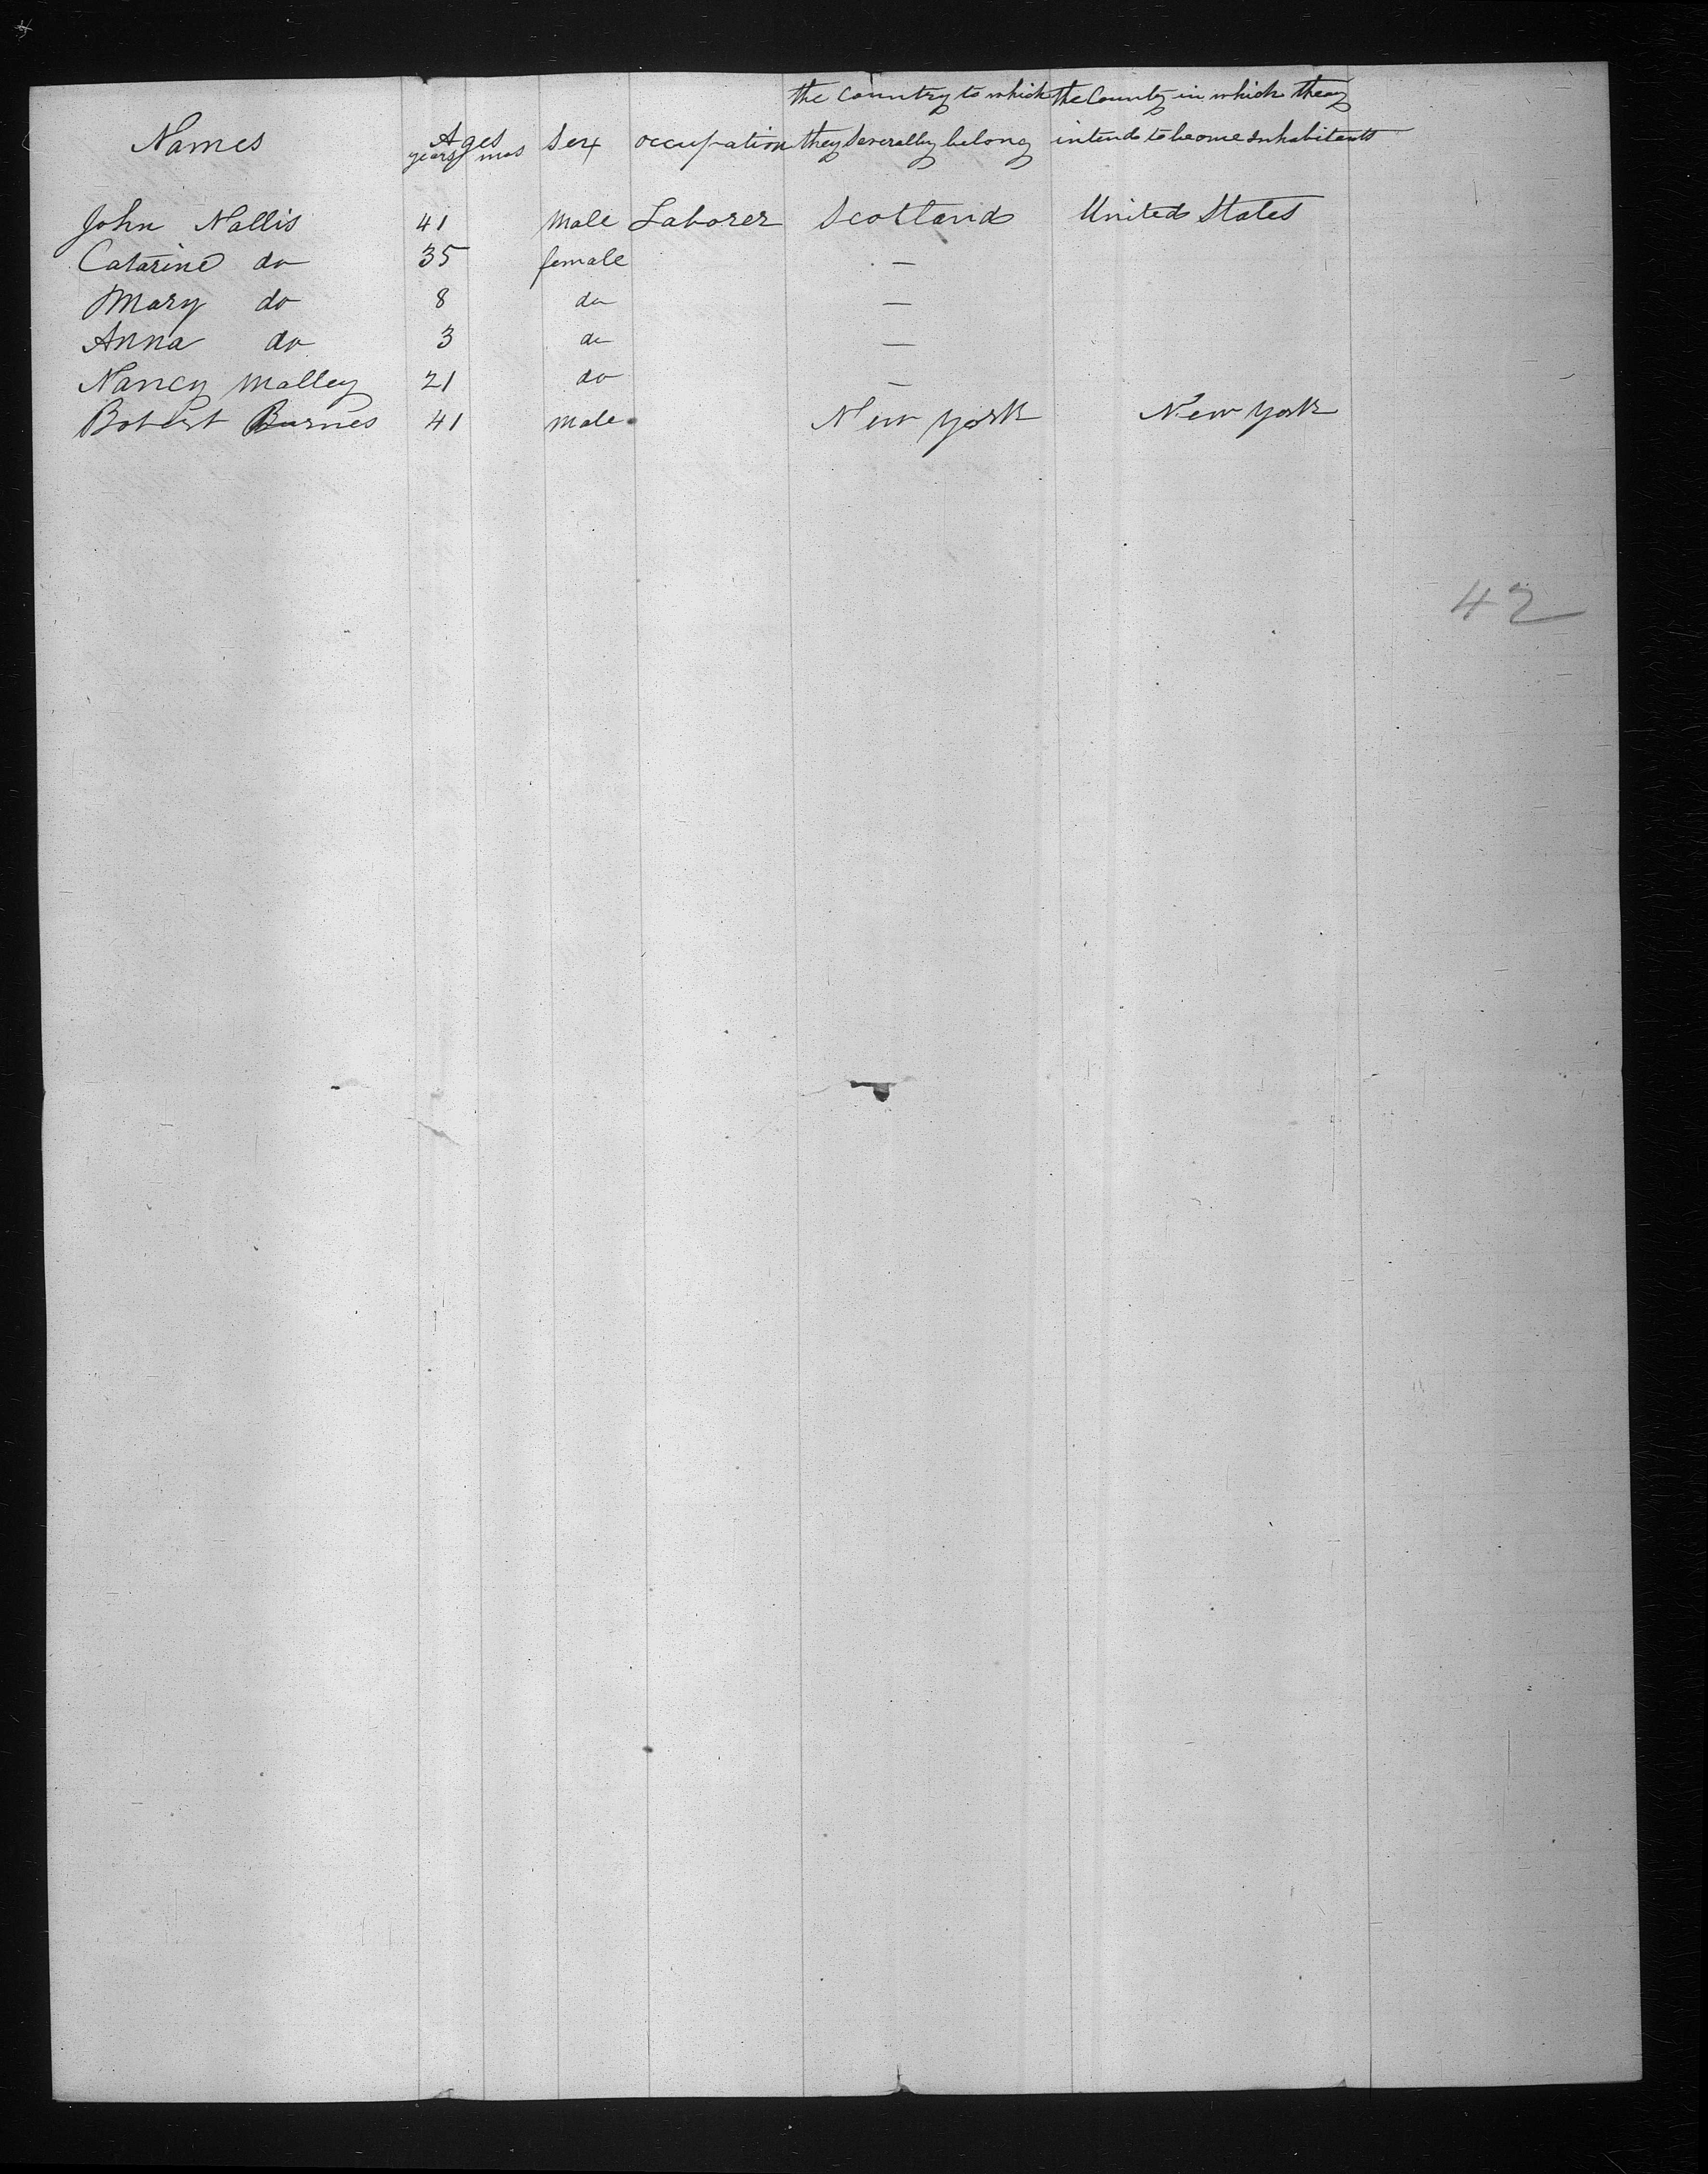 the Country to which the County in which theay
Names Ages Sex occupation they Severally belong intend to become Inhabitants
years mos
John Nallis 41 male Laborer Scotland United States
Catarine do 35 female —
Mary do 8 do —
Anna do 3 do —
Nancy Malley 21 do —
Botert Burnes 41 male New York New York
42